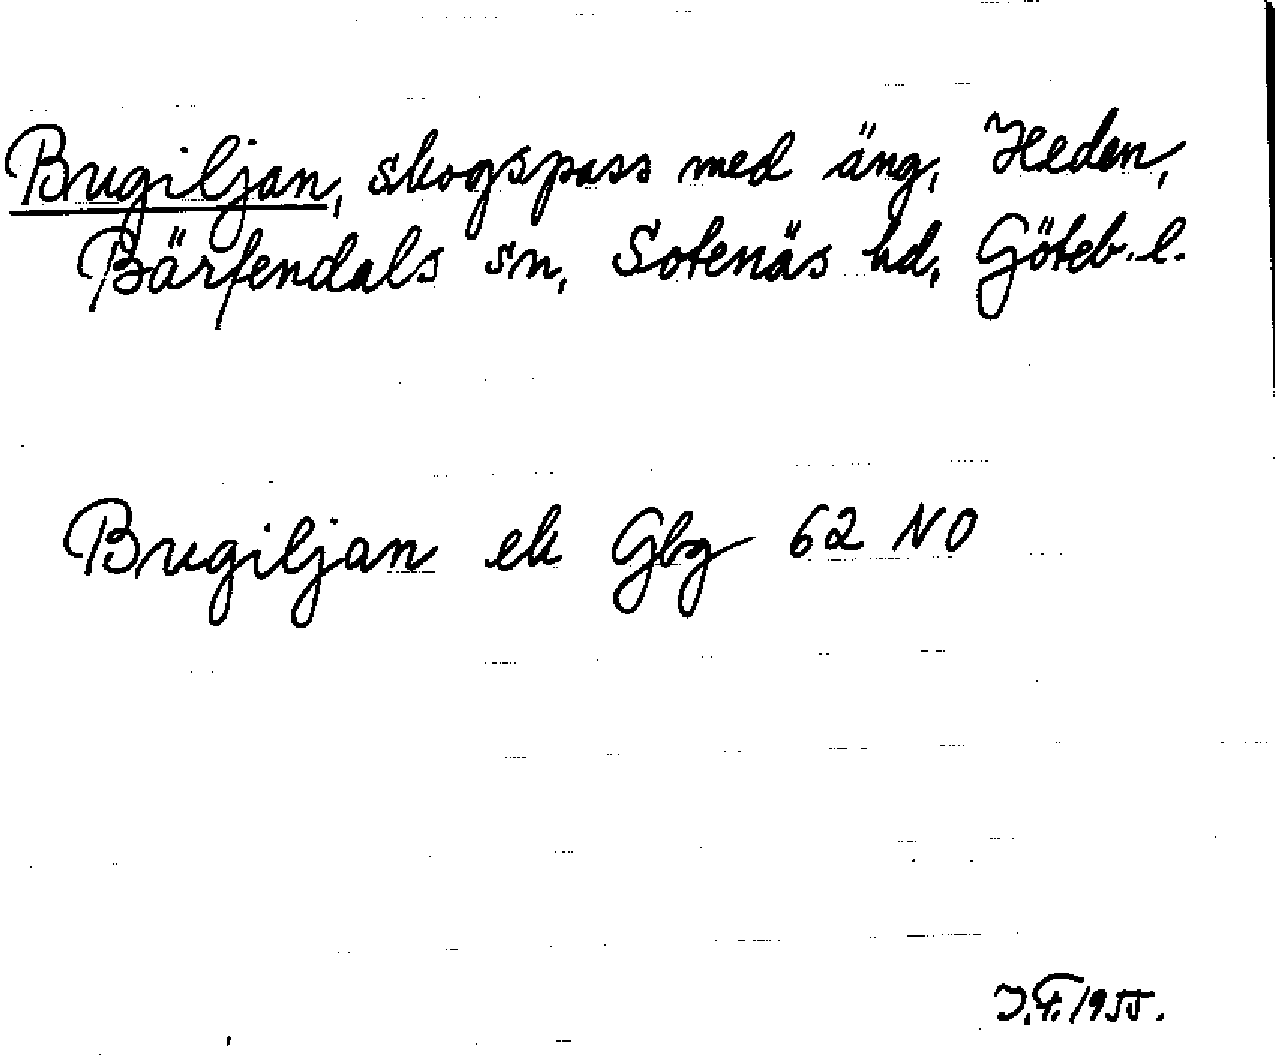 Brugiljan, skogspass med äng, Heden,
Bärfendals sn, Sotenäs hd, Göteb. l.
Brugiljan ek Gbg 62 NO
J.F. 1955.